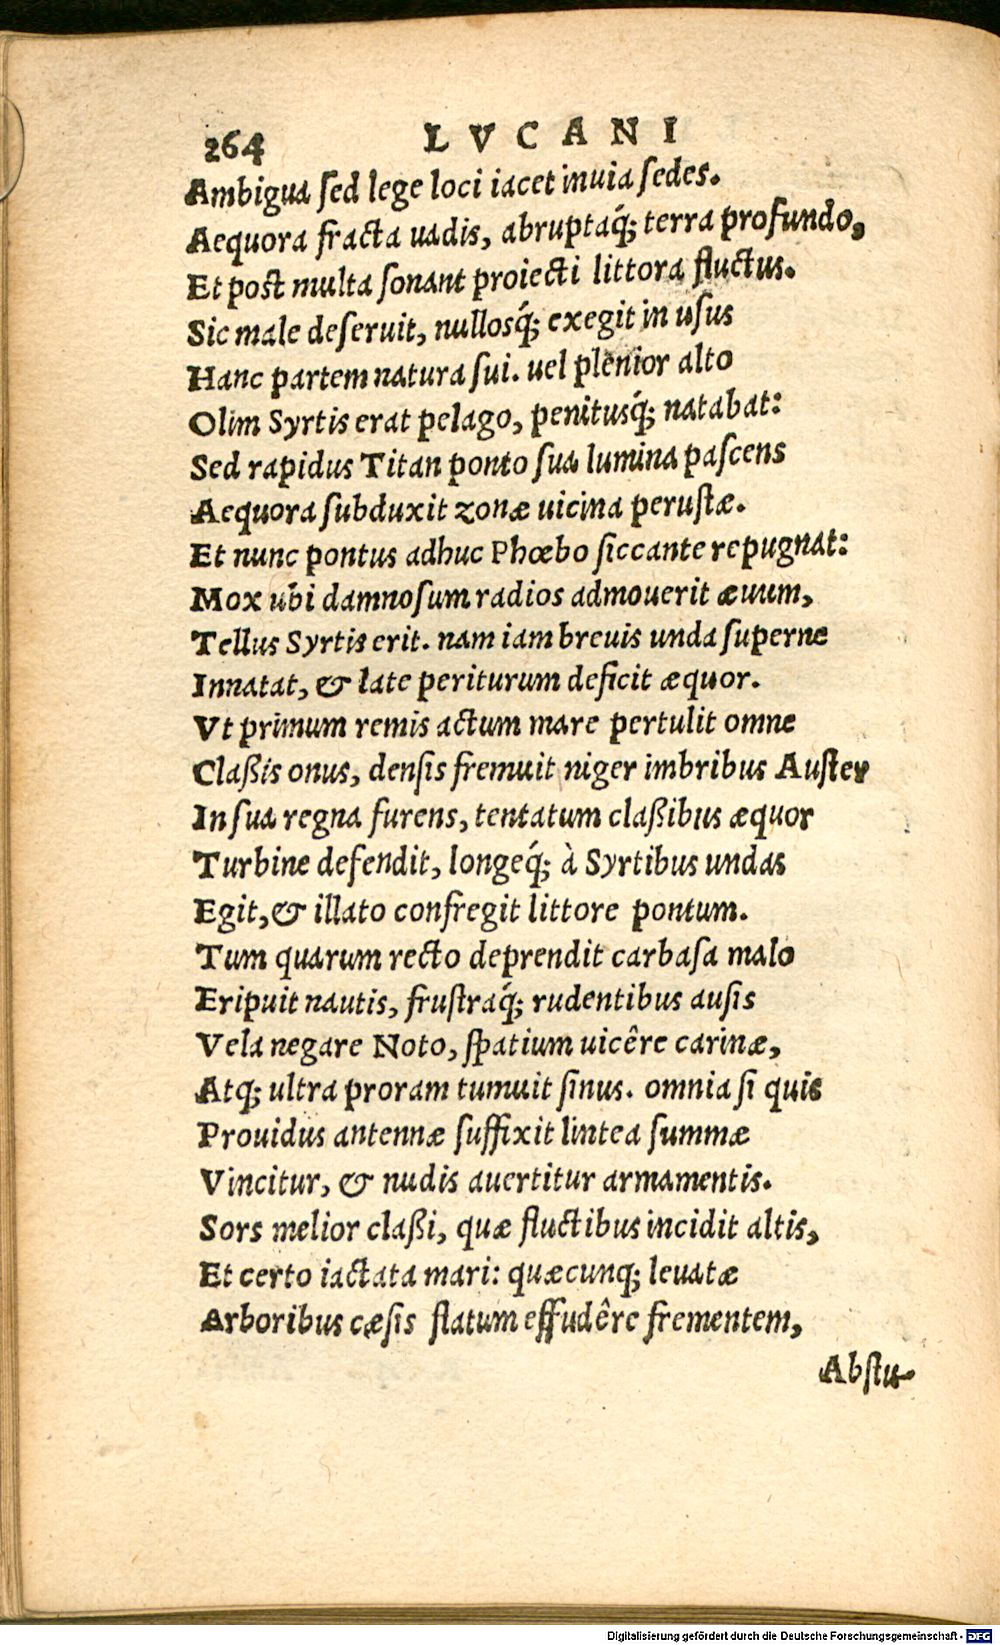 264 LVCANI
Ambigua ſed lege loci iacet inuia ſedes.
Aequora fracta uadis, abruptaq́; terra profundo,
Et post multa ſonant proiecti littora fluctus.
Sic male deſeruit, nullosq́; exegit in uſus
Hanc partem natura ſui. uel plenior alto
Olim Syrtis erat pelago, penitusq́; natabat:
Sed rapidus Titan ponto ſua lumina paſcens
Aequora ſubduxit zonæ uicina peruſtæ.
Et nunc pontus adhuc Phœbo ſiccante repugnat:
Mox ubi damnoſum radios admouerit æuum,
Tellus Syrtis erit. nam iam breuis unda ſuperne
Innatat, & late periturum deficit æquor.
Vt primum remis actum mare pertulit omne
Claßis onus, denſis fremuit niger imbribus Auſter
In ſua regna furens, tentatum claßibus æquor
Turbine defendit, longeq́; à Syrtibus undas
Egit, & illato confregit littore pontum.
Tum quarum recto deprendit carbaſa malo
Eripuit nautis, fruſtraq́; rudentibus auſis
Vela negare Noto, ſpatium uicêre carinæ,
Atq; ultra proram tumuit ſinus. omnia ſi quis
Prouidus antennæ ſuffixit lintea ſummæ
Vincitur, & nudis auertitur armamentis.
Sors melior claßi, quæ fluctibus incidit altis,
Et certo iactata mari: quæcunq; leuatæ
Arboribus cæſis flatum effudêre frementem,
Abſtu-
Digitalisierung gefördert durch die Deutsche Forschungsgemeinschaft - DFG